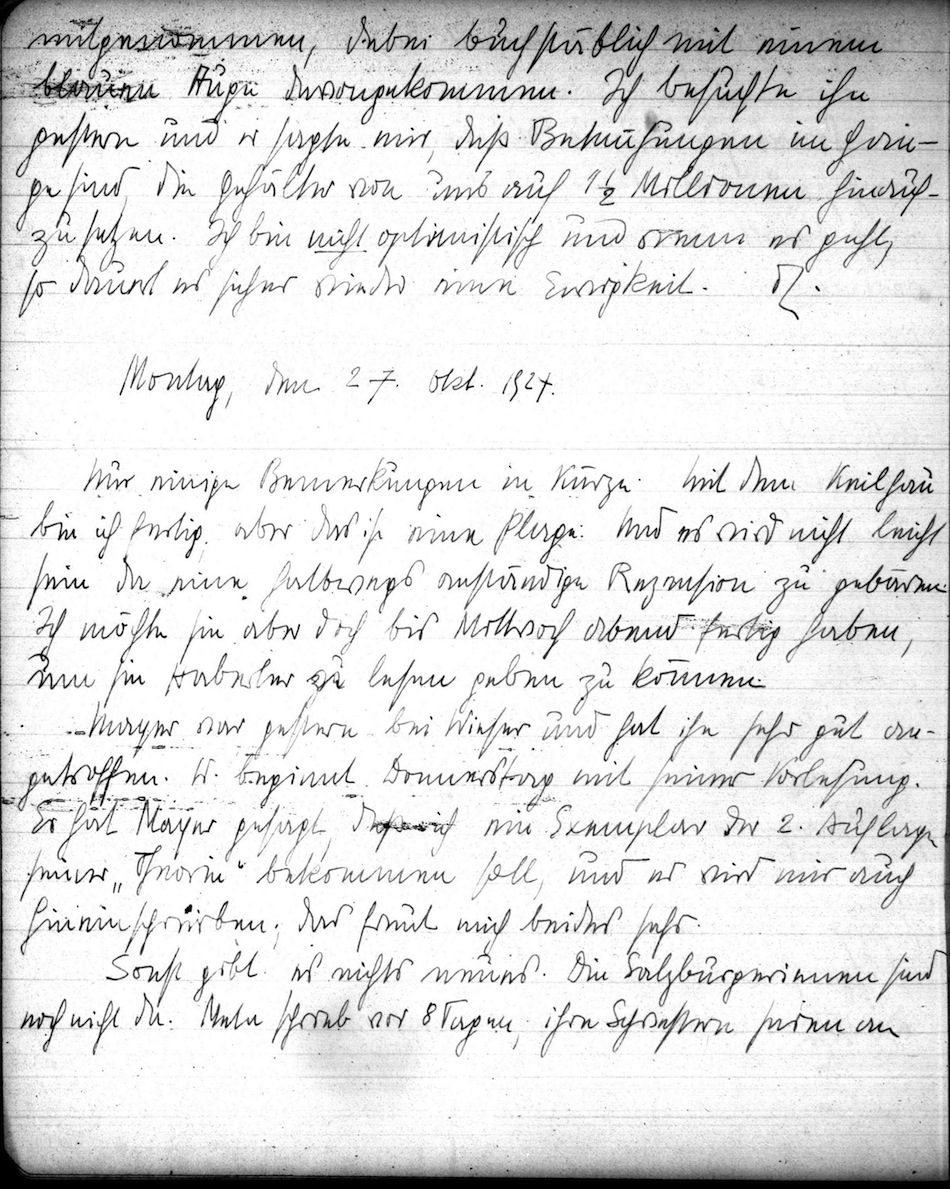 mitgenommen, dabei buchstäblich mit einem
blauen Auge davongekommen. Ich besuchte ihn
gestern und er sagte mir, daß Bemühungen im Gan-
ge sind, die Gehälter von uns auf 1½ Millionen hinauf-
zusetzen. Ich bin nicht optimistisch und wenn es geht,
so dauert es sicher wieder eine Ewigkeit.
Montag, den 27. Okt. 1924.
Nur einige Bemerkungen in Kürze. Mit dem Keilhau
bin ich fertig, aber das ist eine Plage. Und es wird nicht leicht
sein da eine halbwegs anständige Rezension zu gebären.
Ich möchte sie aber doch bis Mittwoch abend fertig haben,
um sie Haberler zu lesen geben zu können.
Mayer war gestern bei Wieser und hat ihn sehr gut an-
getroffen. W. beginnt Donnerstag mit seiner Vorlesung.
Er hat Mayer gesagt, daß ich ein Exemplar der 2. Auflage
seiner „Theorie" bekommen soll, und er wird mir auch
hineinschreiben; das freut mich beides sehr.
Sonst gibt es nichts neues. Die Salzburgerinnen sind
noch nicht da. Meta schrieb vor 8 Tagen, ihre Schwestern seien an